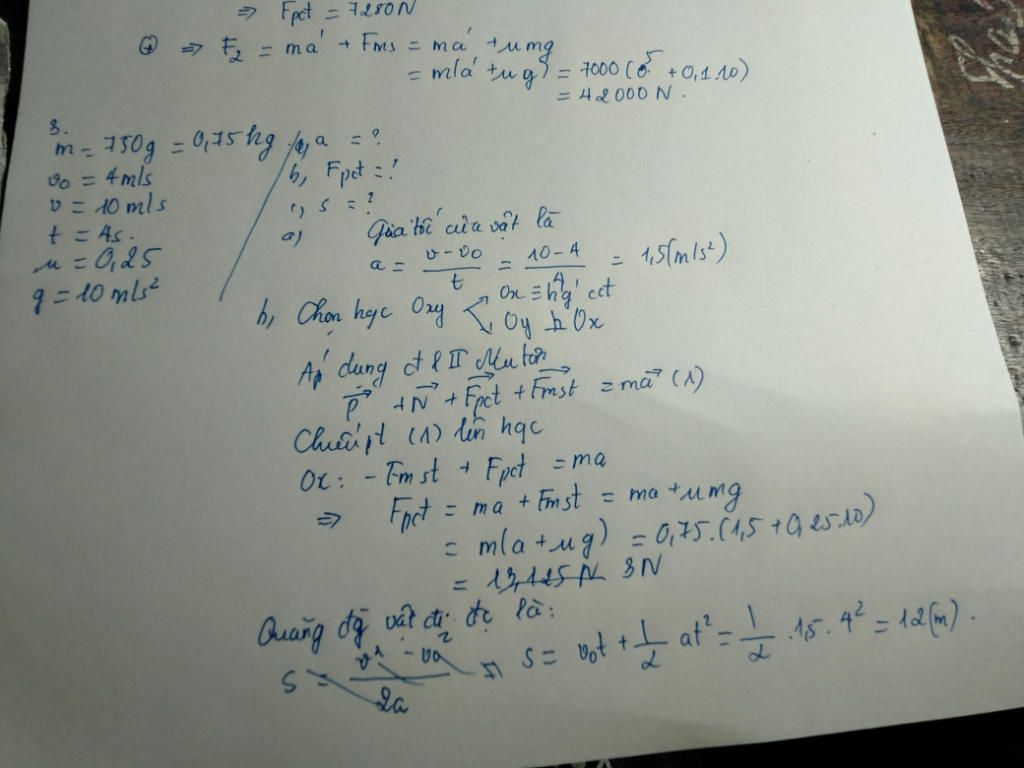 ⇒ Fpct = 7280N
⊕ ⇒ F₂ = ma' + Fms = ma' + μmg
= m(a' + μg) = 7000(5 + 0,1.10)
= 42000N.
3.
m = 750g = 0,75kg
a, a = ?
v₀ = 4m/s
b, Fpct = ?
v = 10m/s
c, s = ?
t = 4s.
μ = 0,25
g = 10m/s²
a) Gia tốc của vật là
a = (v - v₀)/t = (10 - 4)/4 = 1,5(m/s²)
b, Chọn hqc Oxy Ox ≡ hg' cđ
Oy ⊥ Ox
Áp dụng đl II Niu tơn
P⃗ + N⃗ + F⃗pct + F⃗mst = ma⃗ (1)
Chiếu pt (1) lên hqc
Ox: - Fmst + Fpct = ma
⇒ Fpct = ma + Fmst = ma + μmg
= m(a + μg) = 0,75.(1,5 + 0,25.10)
= 13,125N 3N
Quãng đg vật đi đc là:
s = (v² - v₀²)/2a ⇒ s = v₀t + 1/2 at² = 1/2 .1,5. 4² = 12(m).